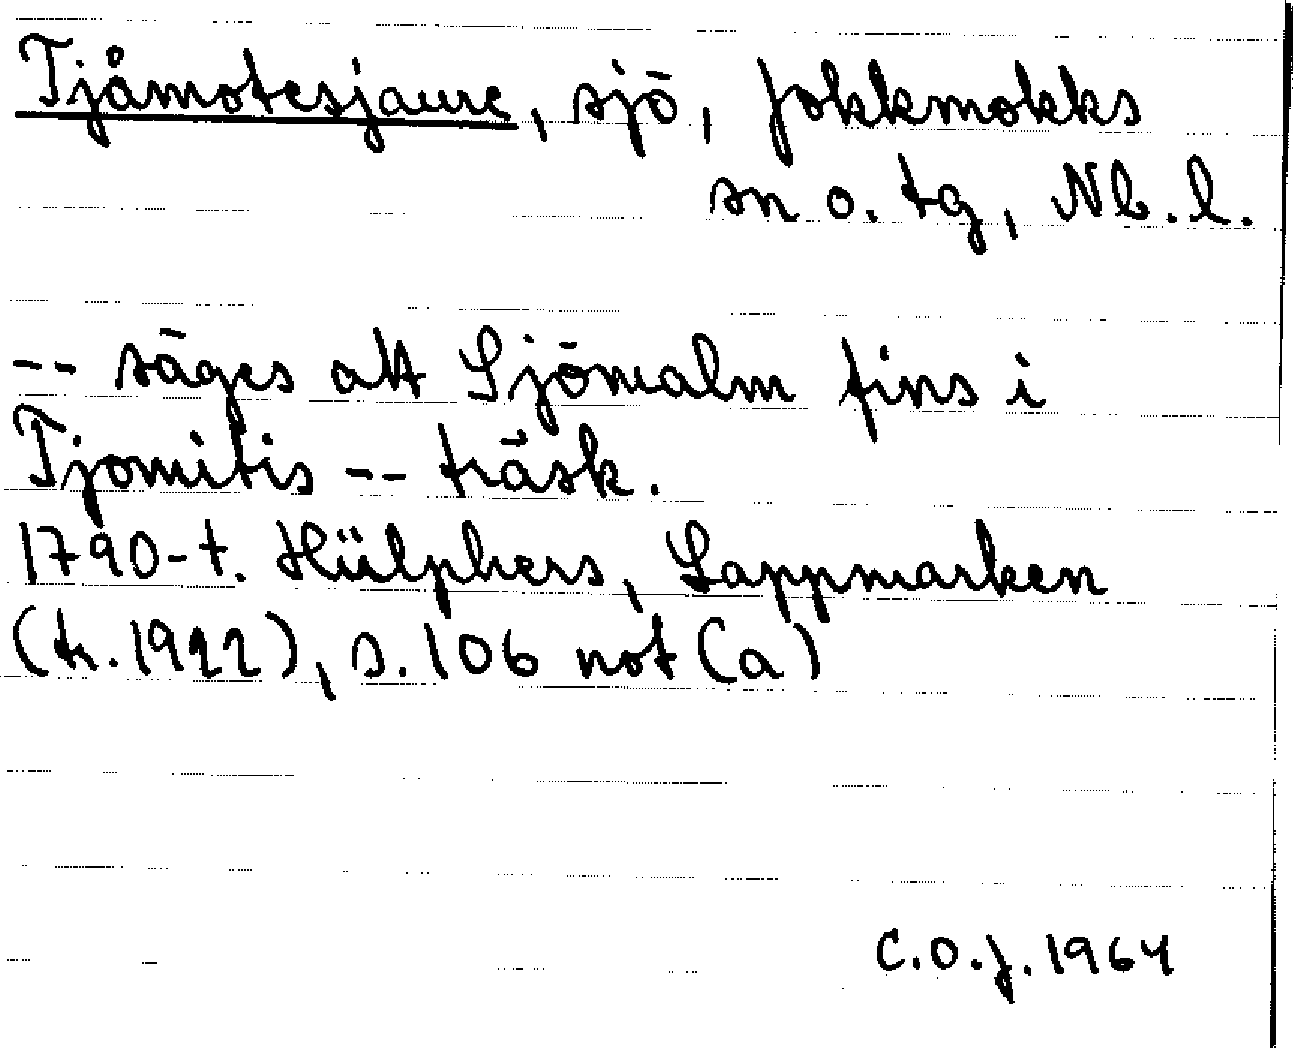 Tjåmotesjaure, sjö, Jokkmokks
sn o. tg, Nb. l.
-- säges att Sjömalm fins i
Tjomitis -- träsk.
1790-t. Hülphers, Lappmarken
(tr. 1922), s. 106 not (a)
C.O.J. 1964